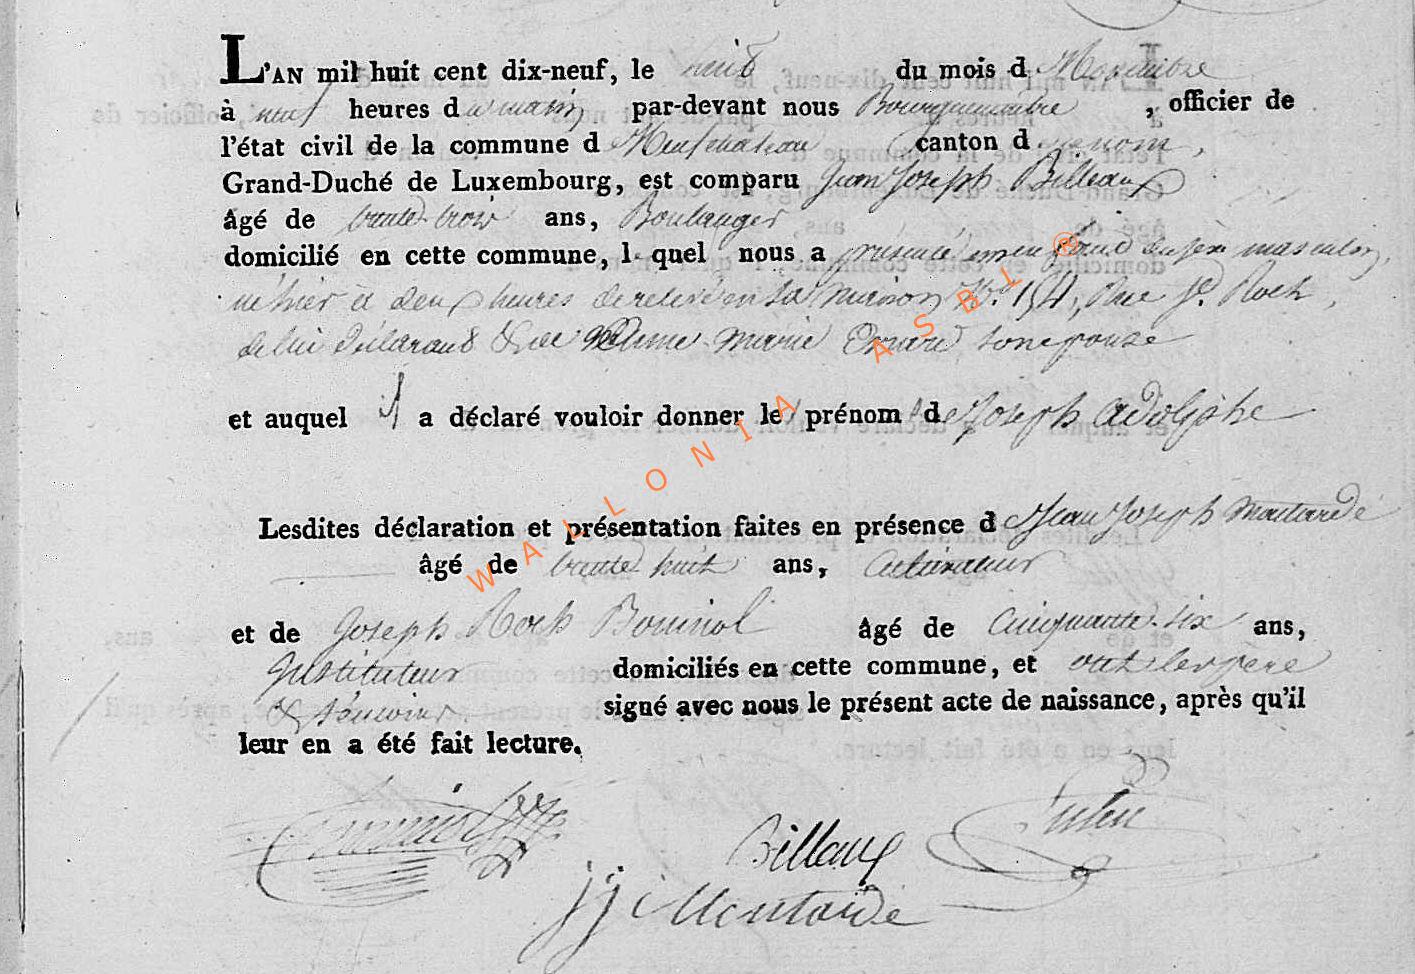 L'AN mil huit cent dix-neuf, le huit du mois d Novembre
à neuf heures du matin par-devant nous Bourguemaitre, officier de
l'état civil de la commune d Neufchateau canton d
Grand-Duché de Luxembourg, est comparu Jean Joseph Billaux
âgé de trente trois ans, Boulanger
domicilié en cette commune, lequel nous a présenté un enfant du sexe masculin,
né hier à deux heures de relevé en sa maison No. 154, Rue St. Roch,
de lui déclarant & de Marie son epouse
et auquel il a déclaré vouloir donner le prénom de Joseph Adolphe
Lesdites déclaration et présentation faites en présence d Jean Joseph
âgé de trente huit ans, cultivateur
et de Joseph Roch âgé de cinquante-six ans,
Instituteur domiciliés en cette commune, et ont les père
& témoins signé avec nous le présent acte de naissance, après qu'il
leur en a été fait lecture.
Billaux
WALLONIA ASBL ®